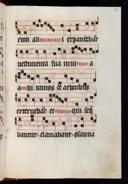 cum alii expandebāt
uestimenta sua in ui
a alii ramos de arboribus
externebant et qui seq
bantur clamabant osanna